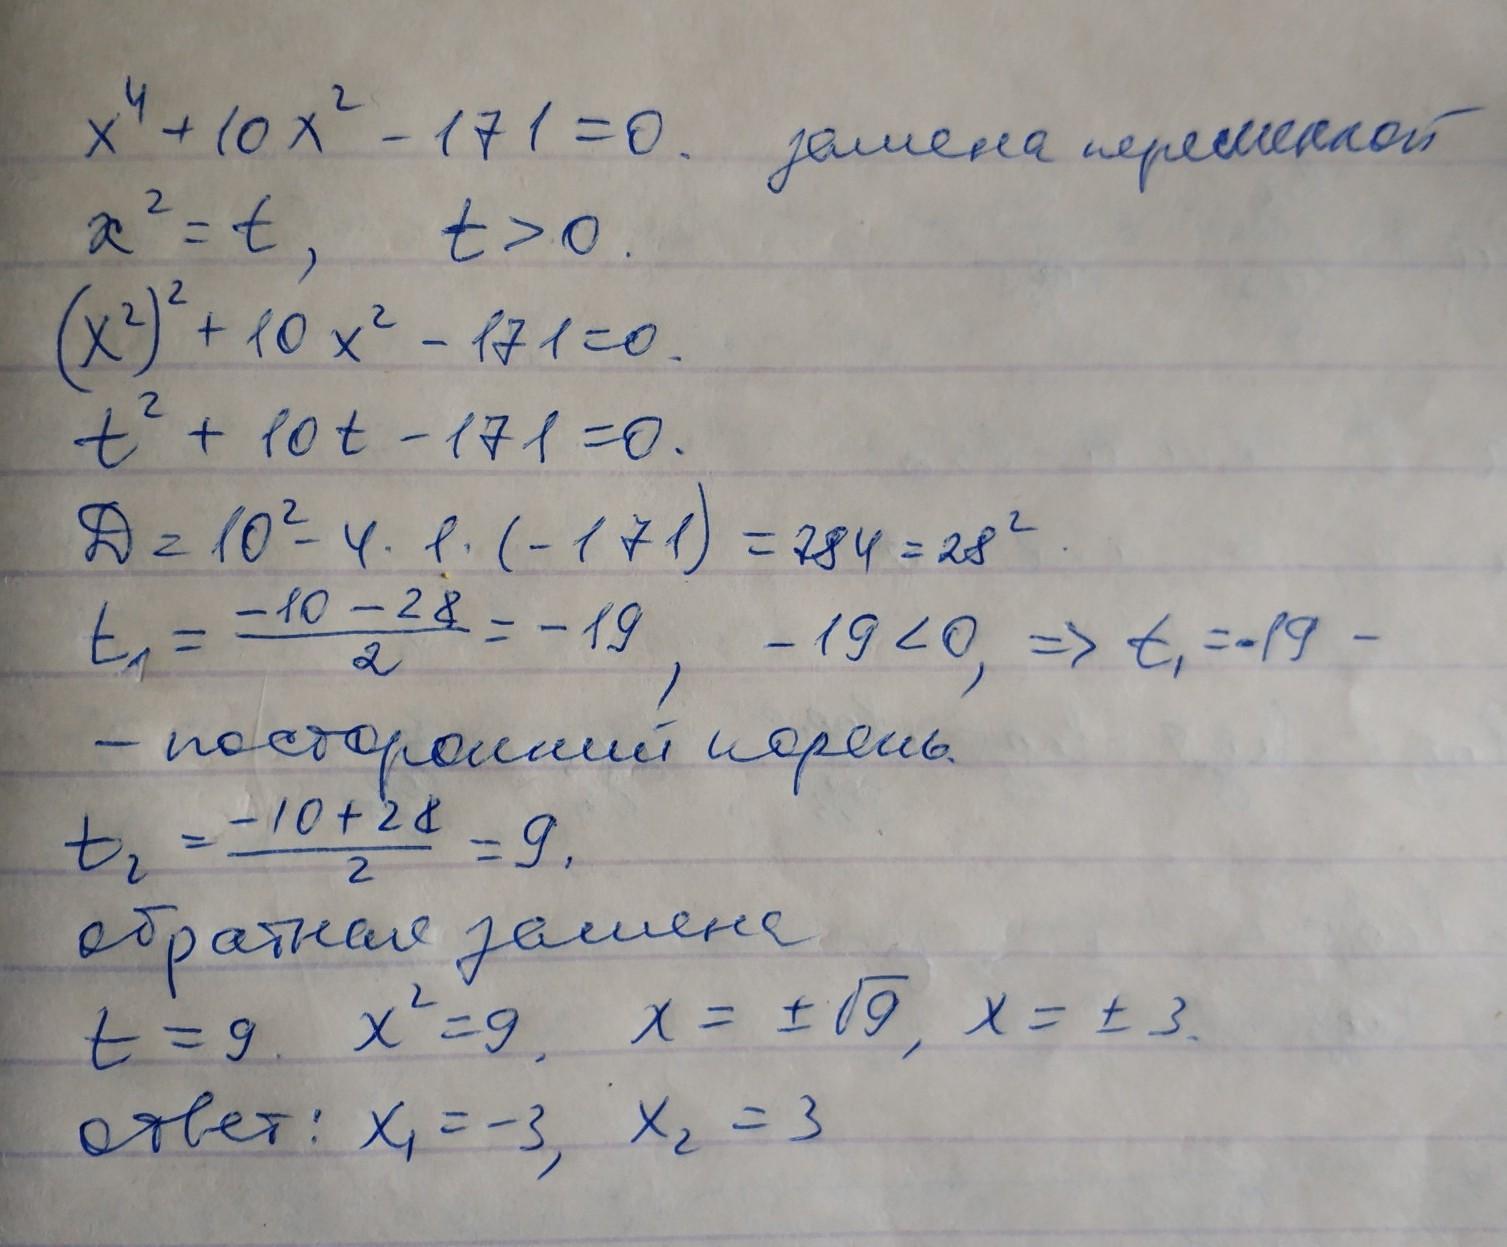 x⁴ + 10x² - 171 = 0. замена переменной
x² = t, t > 0.
(x²)² + 10x² - 171 = 0.
t² + 10t - 171 = 0.
D = 10² - 4 · 1 · (-171) = 784 = 28².
t₁ = (-10 - 28)/2 = -19, -19 < 0, => t₁ = -19 -
- посторонний корень.
t₂ = (-10 + 28)/2 = 9.
обратная замена
t = 9. x² = 9. x = ±√9, x = ±3.
ответ: x₁ = -3, x₂ = 3